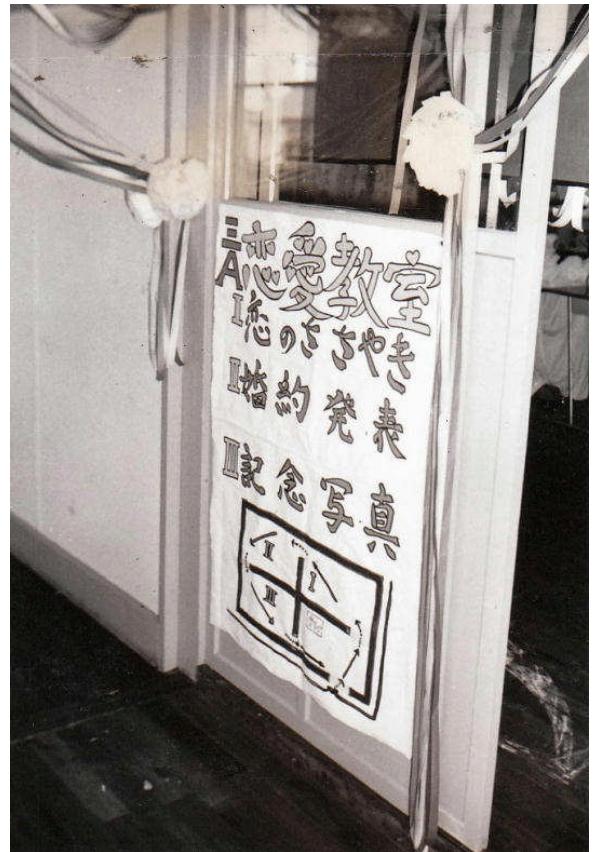 三A恋愛教室
I恋のささやき
II婚約発表
III記念写真
II
I
III